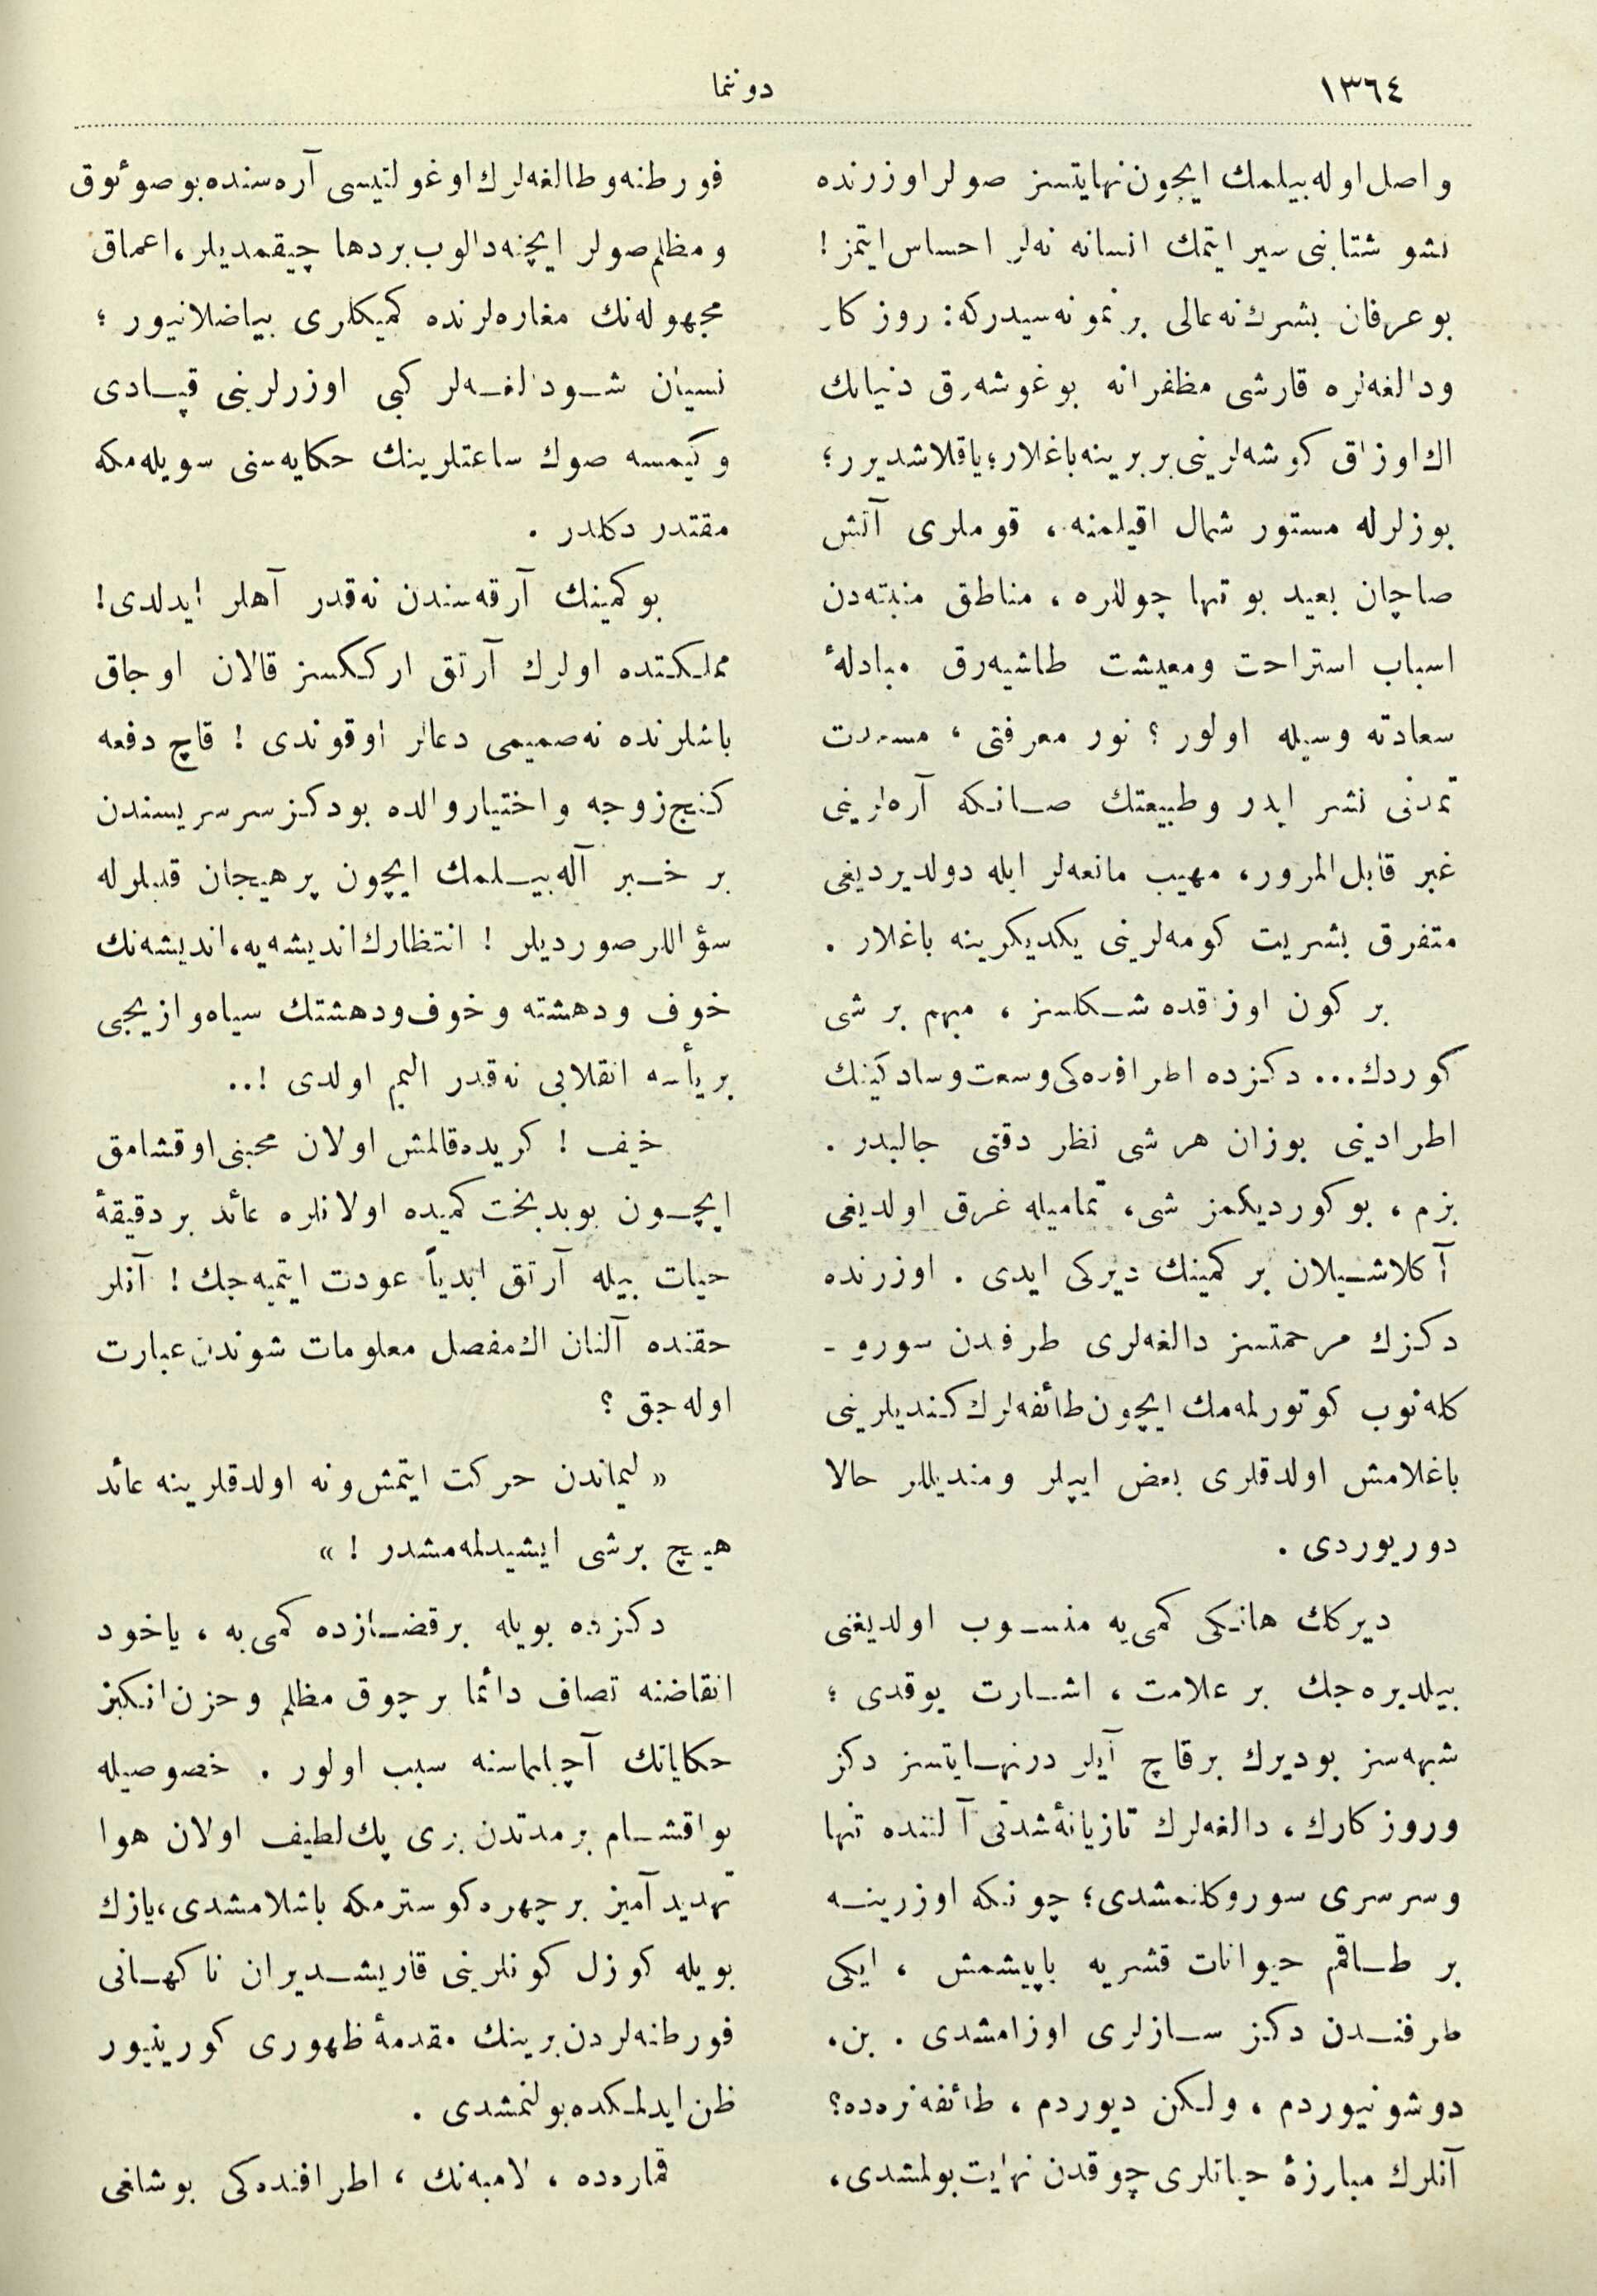 ١٣٦٤
دوننما
واصل اوله بیلمك ایچون نهایتسز صولر اوزرنده
نشو شتابنی سیر ایتمك انسانه نه‌لر احساس ایتمز !
بو عرفان بشرك نه عالی بر نمونه‌سیدركه : روزكار
ودالغه‌لره قارشی مظفرانه بوغوشه‌رق دنیانك
اك اوزاق كوشه‌لرینی بربرینه باغلار ؛ یاقلاشدیرر ؛
بوزلرله مستور شمال اقیلمنه ، قوملری آتش
صاچان بعید بو تنها چوللره ، مناطق منبته‌دن
اسباب استراحت ومعیشت طاشیه‌رق مبادلهٔ
سعادته وسیله اولور ؟ نور معرفتی ، مسرت
تمدنی نشر ایدر وطبیعتك صانكه آره‌لرینی
غیر قابل المرور ، مهیب مانعه‌لر ایله دولدیردیغی
متفرق بشریت كومه‌لرینی یكدیكرینه باغلار .
بر كون اوزاقده شكلسز ، مبهم بر شی
كوردك... دكزده اطرافده‌كی وسعت وسادكینك
اطرادینی بوزان هر شی نظر دقتی جالبدر .
بزم ، بو كوردیكمز شی ، تمامیله غرق اولدیغی
آكلاشیلان بر كمینك دیركی ایدی . اوزرنده
دكزك مرحمتسز دالغه‌لری طرفدن سورو -
كله‌نوب كوتورلمه‌مك ایچون طائفه‌لرك كندیلرینی
باغلامش اولدقلری بعض ایپلر ومندیللر حالا
دوریوردی .
دیركك هانكی كمی‌یه منسوب اولدیغنی
بیلدیره‌جك بر علامت ، اشارت یوقدی ؛
شبهه‌سز بودیرك برقاچ آیلر درنهایتسز دكز
وروزكارك ، دالغه‌لرك تازیانهٔ شدتی آلتنده تنها
وسرسری سوروكلنمشدی ؛ چونكه اوزرینه
بر طاقم حیوانات قشریه یاپیشمش ، ایكی
طرفندن دكز سازلری اوزامشدی . بن ،
دوشونیوردم ، ولكن دیوردم ، طائفه نره‌ده ؟
آنلرك مبارزهٔ حیاتلری چوقدن نهایت بولمشدی ،
فورطنه وطالغه‌لرك اوغولتیسی آره‌سنده بو صوئوق
ومظلم صولر ایچنه دالوب بردها چیقمدیلر ، اعماق
مجهوله‌نك مغاره‌لرنده كمیكلری بیاضلانیور ؛
نسیان شو دالغه‌لر كبی اوزرلرینی قپادی
وكیمسه صوك ساعتلرینك حكایه‌سنی سویله‌مكه
مقتدر دكلدر .
بو كمینك آرقه‌سندن نه‌قدر آهلر ایدلدی !
مملكتده اولرك آرتق ارككسز قالان اوجاق
باشلرنده نه صمیمی دعالر اوقوندی ! قاچ دفعه
كنج زوجه واختیار والده بو دكز سرسریسندن
بر خبر آله‌بیلمك ایچون پرهیجان قلبلرله
سؤاللر صوردیلر ! انتظارك اندیشه‌یه ، اندیشه‌نك
خوف ودهشته وخوف ودهشتك سیاه وازیجی
بر یأسه انقلابی نه‌قدر الیم اولدی !..
حیف ! كریده قالمش اولان محبنی اوقشامق
ایچون بو بدبخت كمیده اولانلره عائد بر دقیقهٔ
حیات بیله آرتق ابدیاً عودت ایتمیه‌جك ! آنلر
حقنده آلنان اك مفصل معلومات شوندن عبارت
اوله‌جق ؟
« لیماندن حركت ایتمش ونه اولدقلرینه عائد
هیچ برشی ایشیدلمه‌مشدر ! »
دكزده بویله بر قضازده كمی‌یه ، یاخود
انقاضنه تصاف دائما بر چوق مظلم وحزن‌انكیز
حكایاتك آچیلماسنه سبب اولور . خصوصیله
بو اقشام بر مدتدن بری پك لطیف اولان هوا
تهدیدآمیز بر چهره كوسترمكه باشلامشدی ، یازك
بویله كوزل كونلرینی قاریشدیران ناكهانی
فورطنه‌لردن برینك مقدمهٔ ظهوری كورینیور
ظن ایدلمكده بولنمشدی .
قماره‌ده ، لامبه‌نك ، اطرافنده‌كی بوشاغی